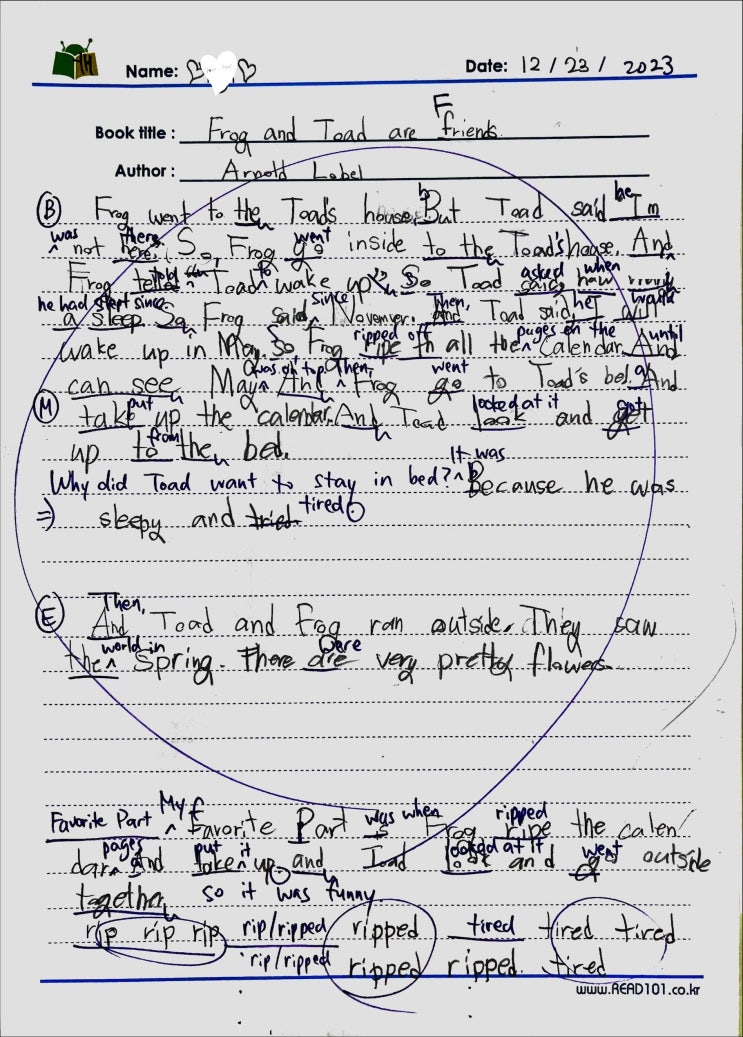 Name: Date: 12 / 23 / 2023
F
Book title : Frog and Toad are friends.
Author : Arnold Lobel
b he
B Frog went to the Toad's house. But Toad said I'm
was there went
not here. So, Frog go inside to the Toad's house. And
told to asked when
Frog telled Toad wake up. So Toad said, how
he had slept since since Then, he would
a sleep. So Frog said November. and Toad said, I will
ripped off pages on the until
wake up in May. So, Frog ripe in all the Calendar. And
was on top. Then, went
can see May. And Frog go to Toad's bed. And
M put looked at it got
take up the calendar. And Toad look and get
from
up to the bed.
It was
Why did Toad want to stay in bed? Because he was
⇒ sleepy and tried tired.
Then,
E And Toad and Frog ran outside. They saw
world in were
the spring. There are very pretty flowers.
My f was when ripped
Favorite Part Favorite Part is Frog ripe the calen
pages put it looked at it went
dar. And take up. and Toad look and go outside
together so it was funny.
rip rip rip rip/ripped ripped tired tired tired
rip/ripped ripped ripped. tired
www.READ101.co.kr